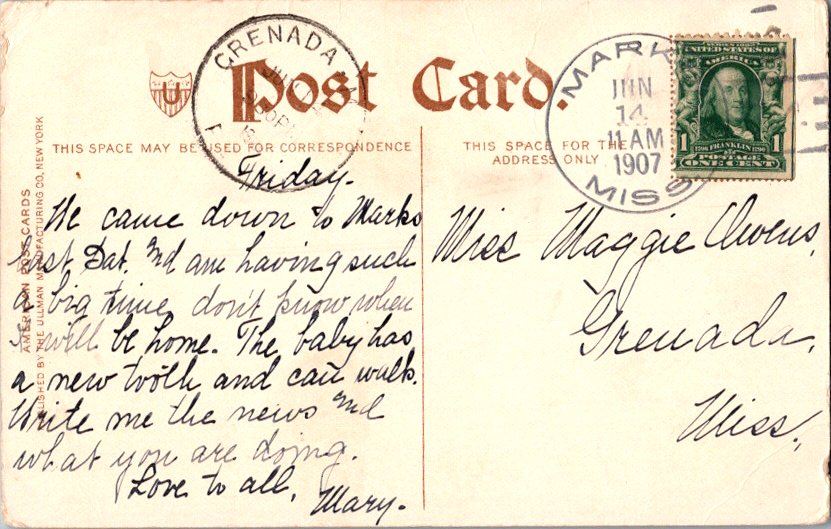 GRENADA
JUN
U
Post Card.
MARKS
JUN
14
11 AM
1907
MISS
SERIES 1902
UNITED STATES OF
AMERICA
1 1
1706 FRANKLIN 1790
POSTAGE
ONE CENT
THIS SPACE MAY BE USED FOR CORRESPONDENCE
THIS SPACE FOR THE
ADDRESS ONLY
AMERICAN POST CARDS
PUBLISHED BY THE ULLMAN MANUFACTURING CO, NEW YORK
Friday.
We came down to Marks
last Sat. and am having such
a big time don't know when
I will be home. The baby has
a new tooth and can walk.
Write me the news and
what you are doing.
Love to all,
Mary.
Miss Maggie Owens,
Grenada,
Miss.,